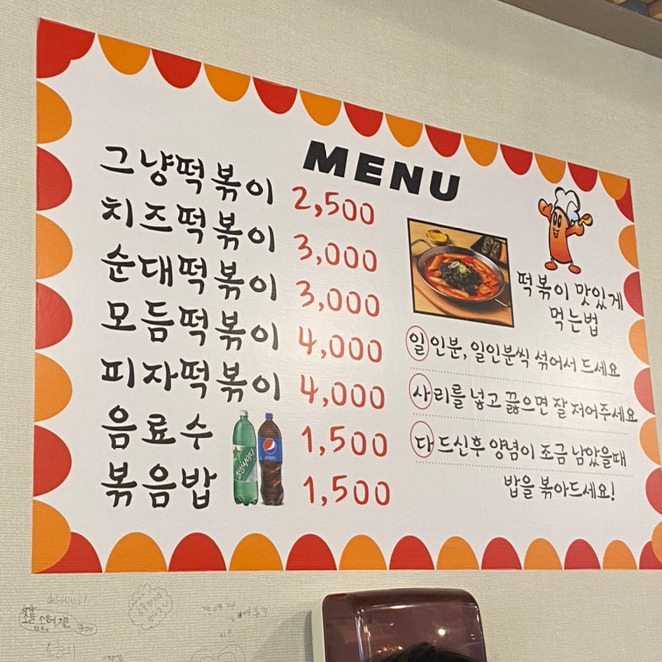 MENU
그냥떡볶이 2,500
치즈떡볶이 3,000
순대떡볶이 3,000
모듬떡볶이 4,000
피자떡볶이 4,000
음료수 1,500
볶음밥 1,500
떡볶이 맛있게
먹는법
일인분, 일인분씩 섞어서 드세요
사리를 넣고 끓으면 잘 저어주세요
다 드신후 양념이 조금 남았을때
밥을 볶아드세요!
pepsi
delicious!